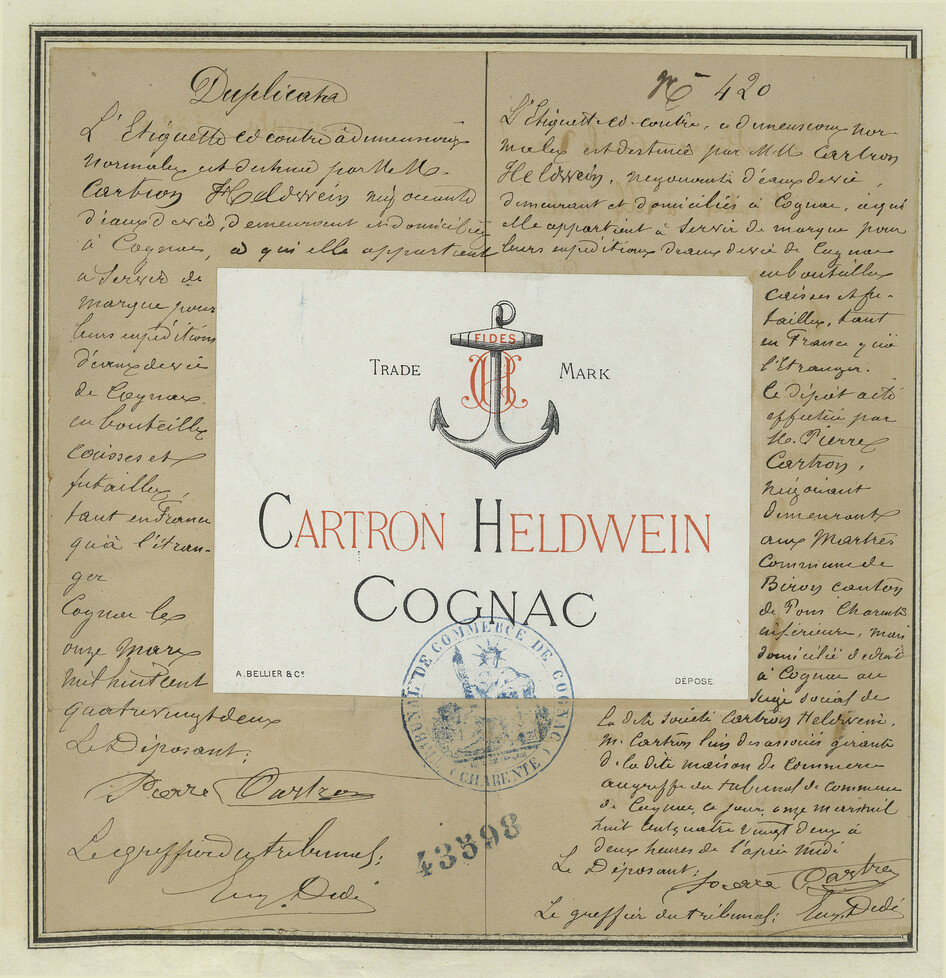 Duplicata
L'Etiquette ci contre à dimensions
normales est destinée par M M.
Cartron Heldwein négociants
d'eaux de vie, demeurant et domiciliés
à Cognac, à qui elle appartient
à servir de
marque pour
leurs expéditions
d'eaux de vie
de Cognac
en bouteilles
caisses et
futailles,
tant en France
qu'à l'étran-
ger
Cognac les
onze Mars
mil huit cent
quatre vingt deux
Le Déposant:
Pierre Cartron
Le greffier du tribunal:
Eug. Dedé
No 420
L'Etiquette ci-contre, à dimensions nor-
males est destinée par M M Cartron
Heldwein, négociants d'eaux de vie,
demeurant et domiciliés à Cognac, à qui
elle appartient à servir de marque pour
leurs expéditions d'eaux de vie de Cognac
en bouteilles
caisses et fu-
tailles, tant
en France qu'à
l'Etranger.
Ce dépôt a été
effectué par
M. Pierre
Cartron,
négociant
demeurant
aux Martres
Commune de
Biron canton
de Pons Charente
inférieure, mais
domicilié de droit
à Cognac au
siège social de
la dite société Cartron Heldwein,
M. Cartron l'un des associés gérants
de la dite maison de commerce
au greffe du tribunal de commerce
de Cognac, ce jour, onze mars mil
huit cent quatre vingt deux à
deux heures de l'après midi
Le Déposant: Pierre Cartron
Le greffier du tribunal: Eug. Dedé
FIDES
TRADE MARK
CH
CARTRON HELDWEIN
COGNAC
A. BELLIER & Co
DÉPOSÉ
TRIBUNAL DE COMMERCE DE COGNAC
(CHARENTE)
43598